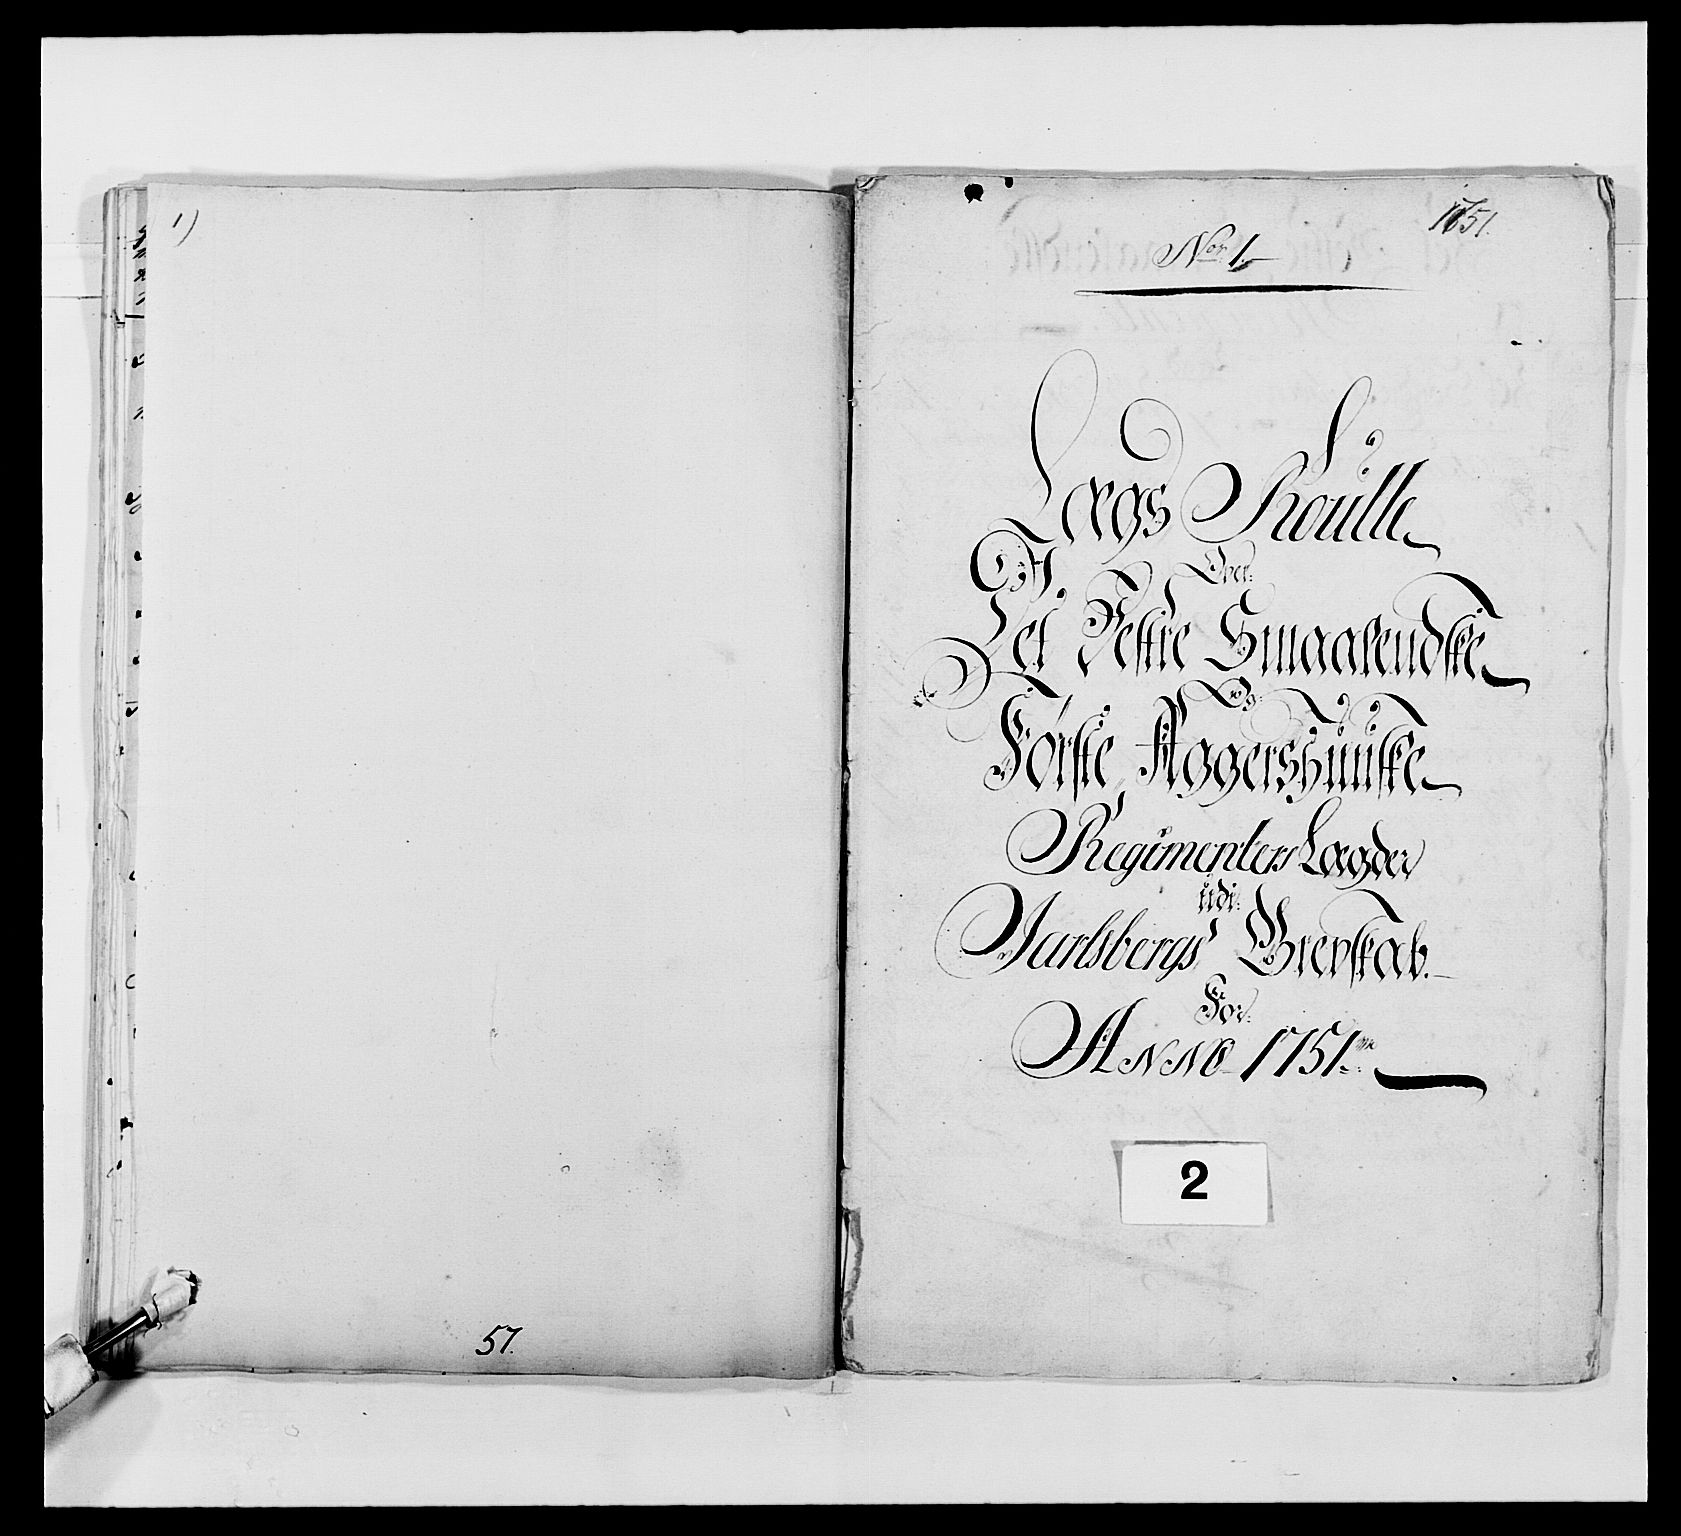 1)
57.
1751.
No 1.
Lægs Roulle
Over
Det Vestre Smaalendske
Og
Første Aggershuuske
Regimenters Lægder
udi
Jarlsbergs Grevskab.
For
ANNO 1751
2